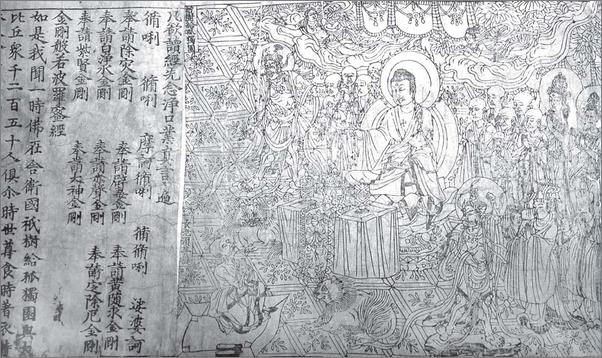 祇樹給孤獨園
凡欲讀經先念淨口業真言一遍
脩唎 脩唎 摩訶脩唎 脩脩唎 娑婆訶
奉請除灾金剛 奉請辟毒金剛 奉請黃隨求金剛
奉請白淨水金剛 奉請赤聲金剛 奉請定除厄金剛
奉請紫賢金剛 奉請大神金剛
金剛般若波羅蜜經
如是我聞一時佛在舍衛國祇樹給孤獨園與大
比丘衆千二百五十人俱尒時世尊食時著衣持